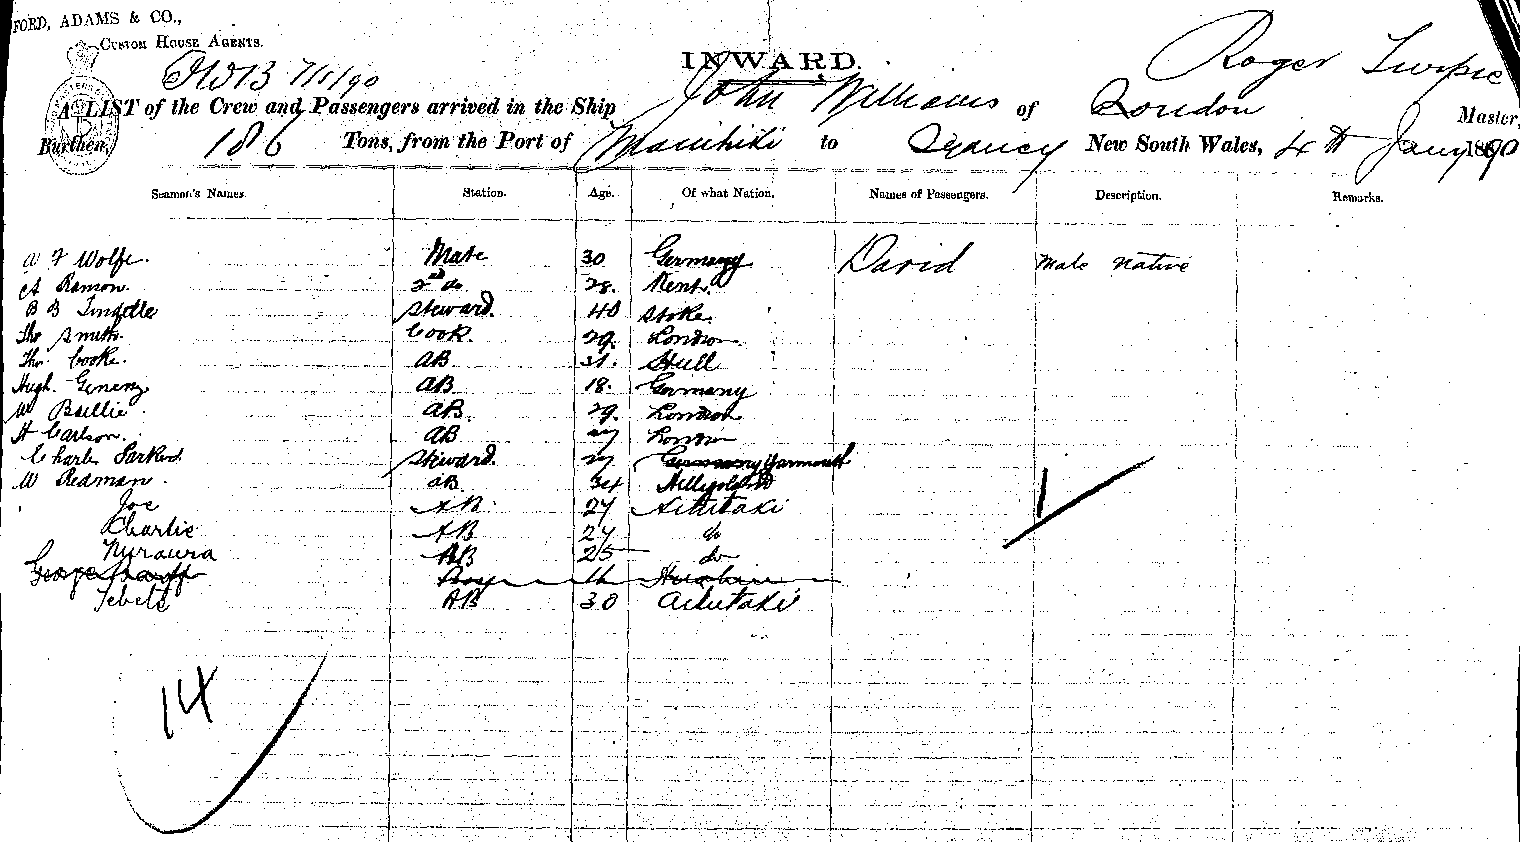 FORD, ADAMS & CO.,
CUSTOM HOUSE AGENTS.
7/1/90
INWARD.
Roger Turpie
A LIST of the Crew and Passengers arrived in the Ship John Williams of London Master,
Burthen, 186 Tons, from the Port of Manihiki to Sydney New South Wales, 4th Jany 1890
Seamen's Names. Station. Age. Of what Nation. Names of Passengers. Description. Remarks.
Wolfe. Mate 30 Germany David Male Native
Ramon. 2nd do 28. Kent.
B B steward. 40 Stoke.
Tho Smith. Cook. 29. London
Tho. Cooke. AB 31. Hull
Hugh. AB. 18. Germany
W Baillie. AB. 29. London
H Carlson. AB 27 London
Charles steward. 27 Germany Yarmouth
W Redman. AB. 34
Joe AB. 27 Aitutaki
Charlie AB 27 do
AB 25 do
George Boy 16
AB 30 Aitutaki
14
1